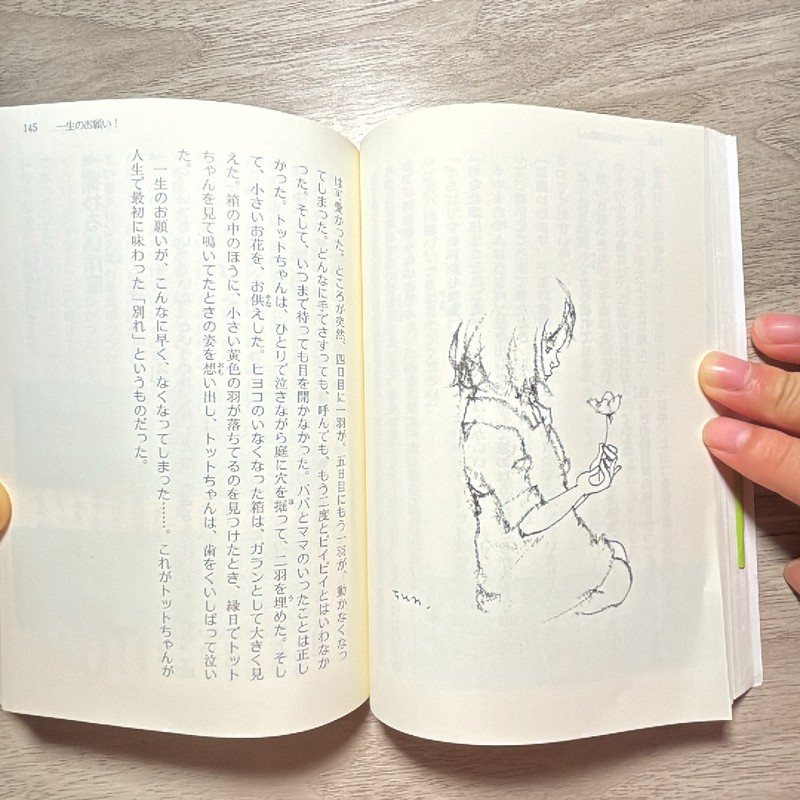 145 一生のお願い！
は可愛かった。ところが突然、四日目に一羽が、五日目にもう一羽が、動かなくなっ
てしまった。どんなに手でさすっても、呼んでも、もう二度とピイピイとはいわなか
った。そして、いつまで待っても目を開かなかった。パパとママのいったことは正し
かった。トットちゃんは、ひとりで泣きながら庭に穴を掘って、二羽を埋めた。そし
て、小さいお花を、お供えした。ヒヨコのいなくなった箱は、ガランとして大きく見
えた。箱の中のほうに、小さい黄色の羽が落ちてるのを見つけたとき、縁日でトット
ちゃんを見て鳴いてたときの姿を想い出し、トットちゃんは、歯をくいしばって泣い
た。
一生のお願いが、こんなに早く、なくなってしまった……。これがトットちゃんが
人生で最初に味わった「別れ」というものだった。